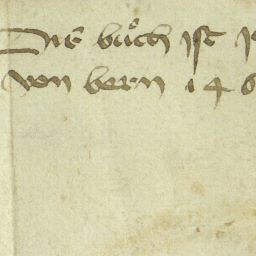 Dis bůch ist
von bern 146